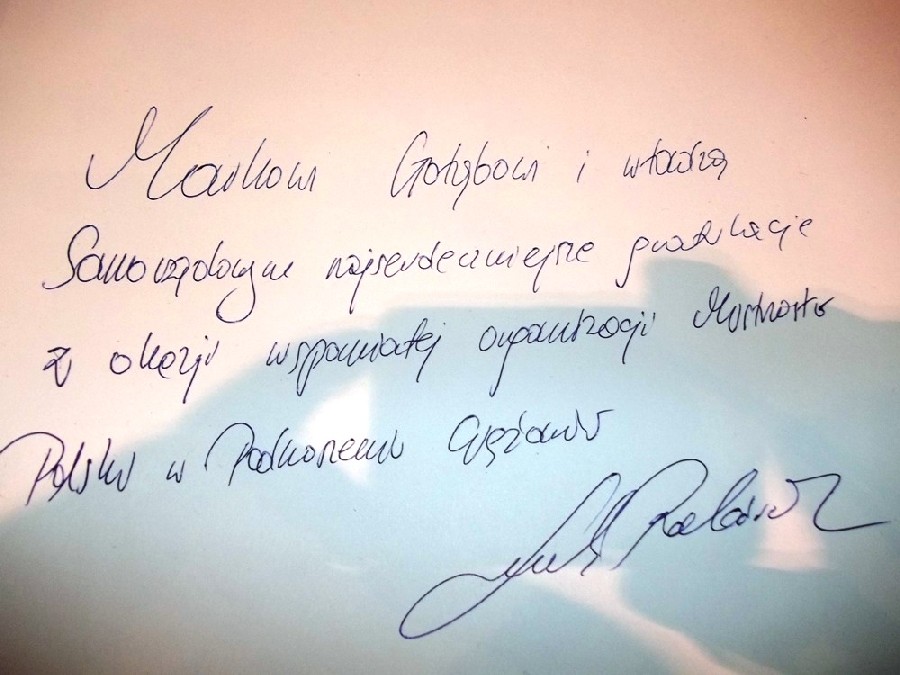 Markowi Gołąbowi i władzą
Samorządowym najserdeczniejsze gratulacje
z okazji wspaniałej organizacji Mistrzostw
Polski w Podnoszeniu Ciężarów